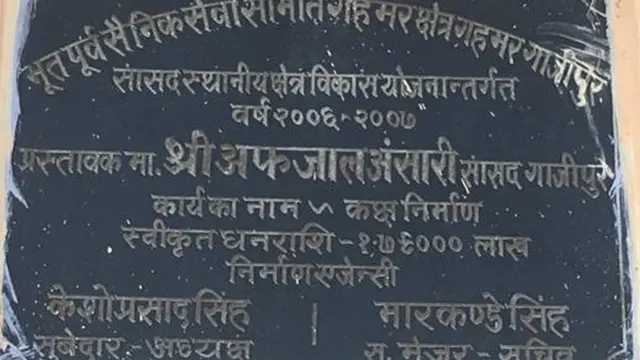 भूतपूर्व सैनिक सेवा समिति गहमर क्षेत्र गहमर गाजीपुर
सांसद स्थानीय क्षेत्र विकास योजनान्तर्गत
वर्ष २००६-२००७
प्रस्तावक मा. श्री अफजाल अंसारी सांसद गाजीपुर
कार्य का नाम ~ कक्ष निर्माण
स्वीकृत धनराशि - १.७६००० लाख
निर्माण एजेन्सी
केशोप्रसाद सिंह | मारकण्डे सिंह
सूबेदार - अध्यक्ष सू. मेजर - सचिव